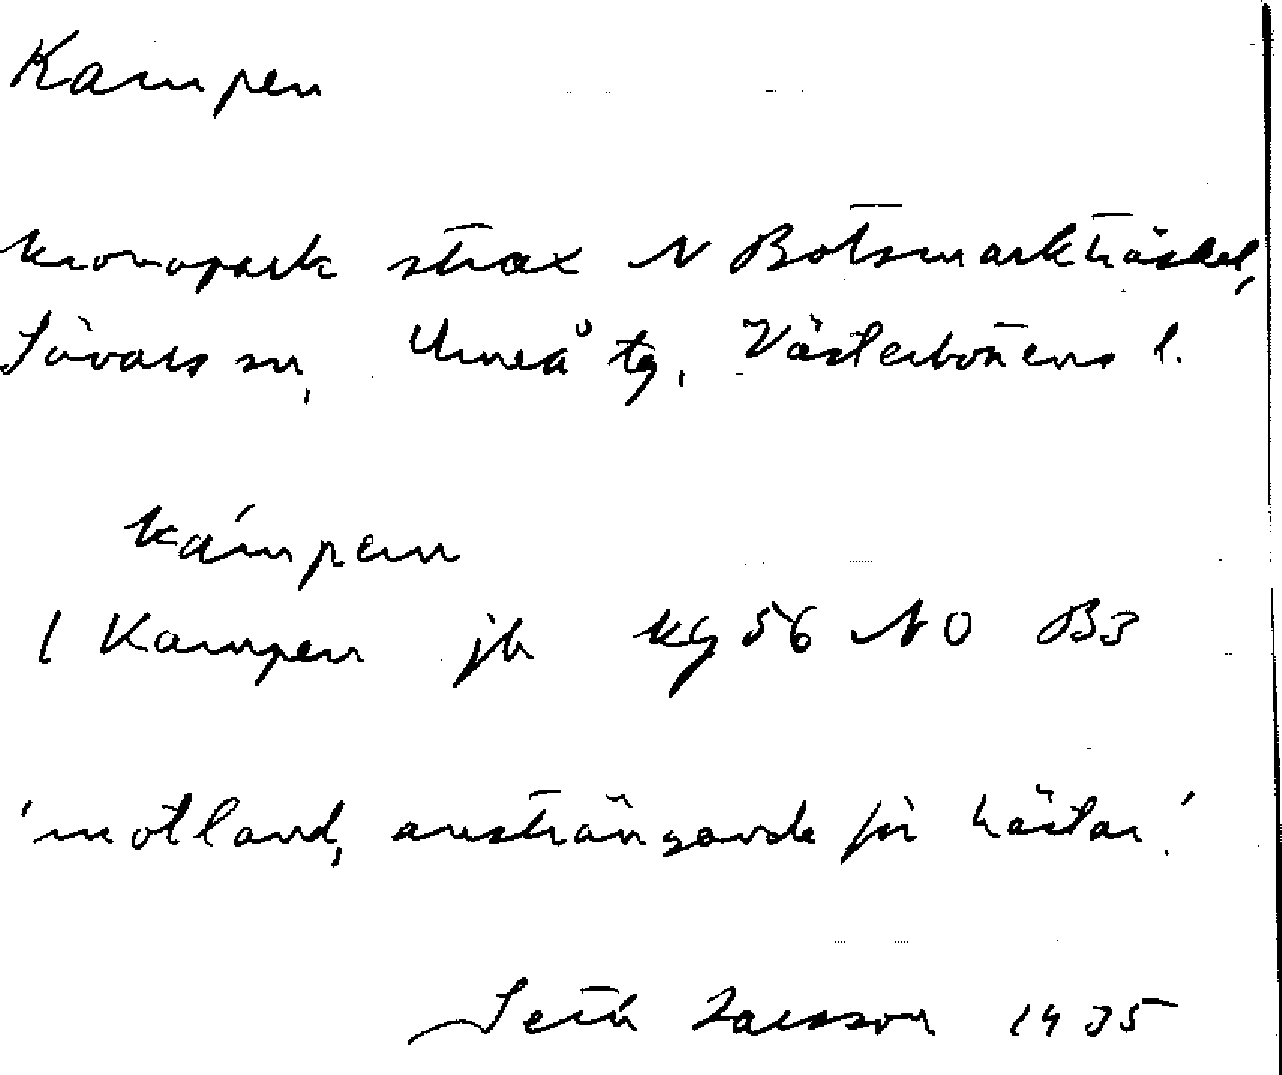 Kampen
kronopark strax N Botsmarkträsket,
Sävars sn, Umeå tg, Västerbottens l.
kámpen
( Kampen jb kg 56 NO B3
'motland, ansträngande för hästar'.
Seth Larsson 1935